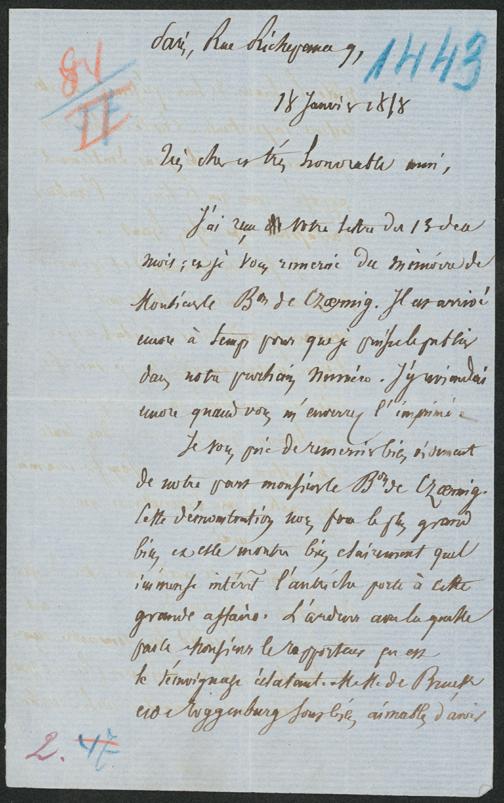 Paris, Rue Richepance 9,
1443
84
II
77
18 Janvier 1858
Très cher et très honorable ami,
J'ai reçu votre lettre du 13 de ce
mois; et je vous remercie du mémoire de
Monsieur le Bon de Czoernig. Il est arrivé
encore à temps pour que je puisse le publier
dans notre prochain numéro. J'y reviendrai
encore quand vous m'enverrez l'imprimé.
Je vous prie de remercier bien vivement
de notre part monsieur le Bon de Czoernig.
Cette démonstration nous fera le plus grand
bien et elle montre bien clairement quel
immense intérêt l'Autriche porte à cette
grande affaire. L'ardeur avec laquelle
parle Monsieur le rapporteur en est
le témoignage éclatant. MM. de Bruck
et de Toggenburg sont bien aimables d'avoir
2. 47